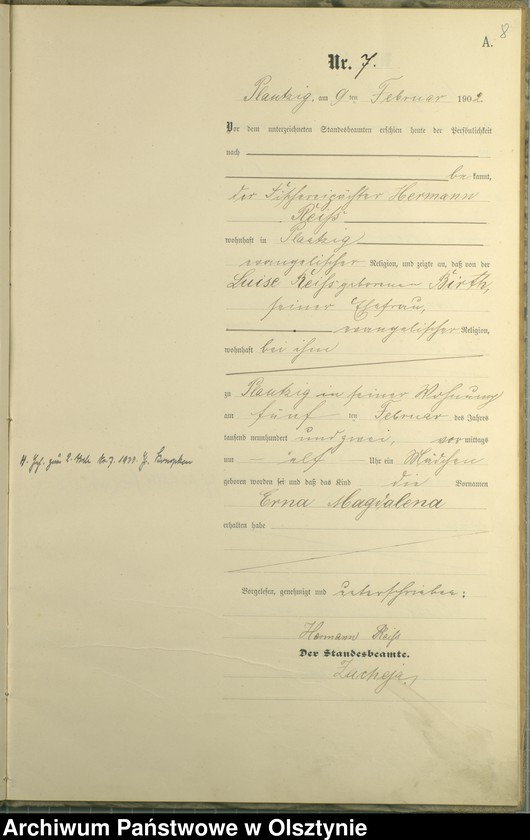 8
A.
Nr. 7.
Plautzig, am 9ten Februar 1902
Vor dem unterzeichneten Standesbeamten erschien heute der Persönlichkeit
nach
be kannt,
der Fischereipächter Hermann
Reiß
wohnhaft in Plautzig
evangelischer Religion, und zeigte an, daß von der
Luise Reiß geborenen Birth,
seiner Ehefrau,
evangelischer Religion,
wohnhaft bei ihm
zu Plautzig in seiner Wohnung
am fünf ten Februar des Jahres
tausend neunhundert und zwei, vor mittags
um elf Uhr ein Mädchen
geboren worden sei und daß das Kind die Vornamen
Erna Magdalena
erhalten habe
Vorgelesen, genehmigt und unterschrieben:
Hermann Reiß
Der Standesbeamte.
Zacheja
Archiwum Państwowe w Olsztynie